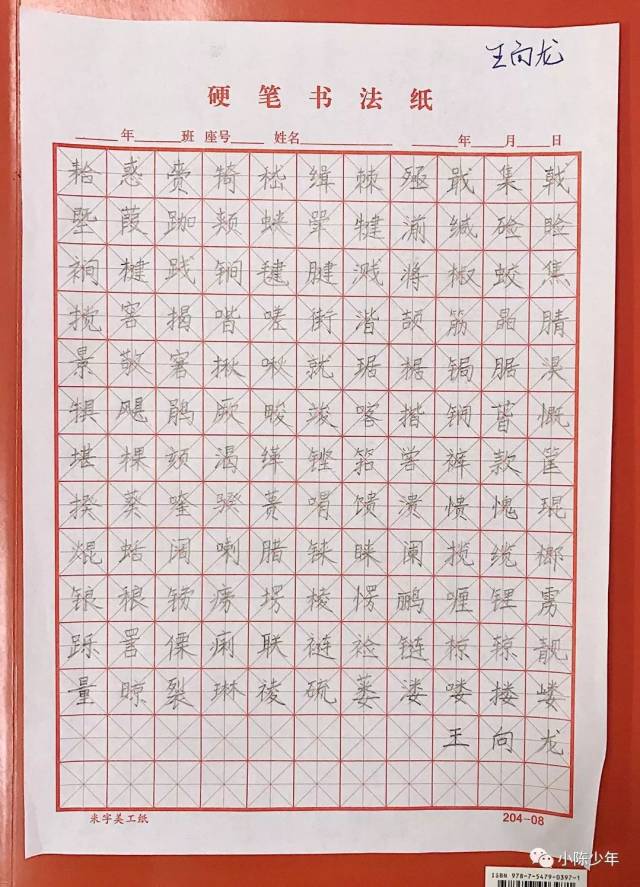 王向龙
硬笔书法纸
年 班 座号 姓名 年 月 日
耠 惑 赍 犄 嵇 缉 棘 殛 戢 集 戟
塈 葭 跏 颊 蛱 斝 犍 湔 缄 硷 睑
裥 楗 践 锏 毽 腱 溅 蒋 椒 蛟 焦
搅 窖 揭 喈 嗟 街 湝 颉 筋 晶 腈
景 敬 窘 揪 啾 就 琚 椐 锔 腒 湨
犋 飓 鹃 厥 畯 竣 喀 揩 锎 蒈 慨
堪 棵 颏 渴 缂 铿 箁 喾 裤 款 筐
揆 葵 喹 骙 蒉 喟 馈 溃 愦 愧 琨
焜 蛞 阔 喇 腊 铼 睐 阑 揽 缆 榔
锒 稂 铹 痨 塄 棱 愣 鹂 喱 锂 雳
跞 詈 傈 痢 联 裢 裣 链 椋 辌 靓
量 晾 裂 琳 祾 硫 蒌 溇 喽 搂 嵝
王 向 龙
米字美工纸 204-08
小陈少年
ISBN 978-7-5479-0397-1